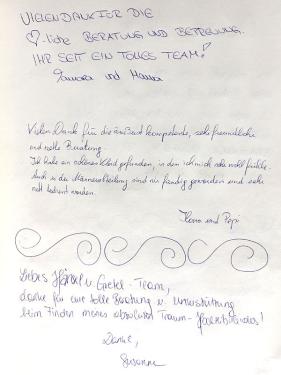 VIELEN DANK FÜR DIE
♡-liche BERATUNG UND BETREUUNG.
IHR SEID EIN TOLLES TEAM!
und
Vielen Dank für die äußerst kompetente, sehr freundliche
und nette Beratung.
Ich habe ein schönes Kleid gefunden, in dem ich mich sehr wohl fühle.
Auch in der Männerabteilung sind wir fündig geworden und sehr
nett bedient worden.
und Pepi
Liebes Hänsel u. Gretel - Team,
danke für eure tolle Beratung u. Unterstützung
beim Finden meines absoluten Traum-
Danke,
Susanne